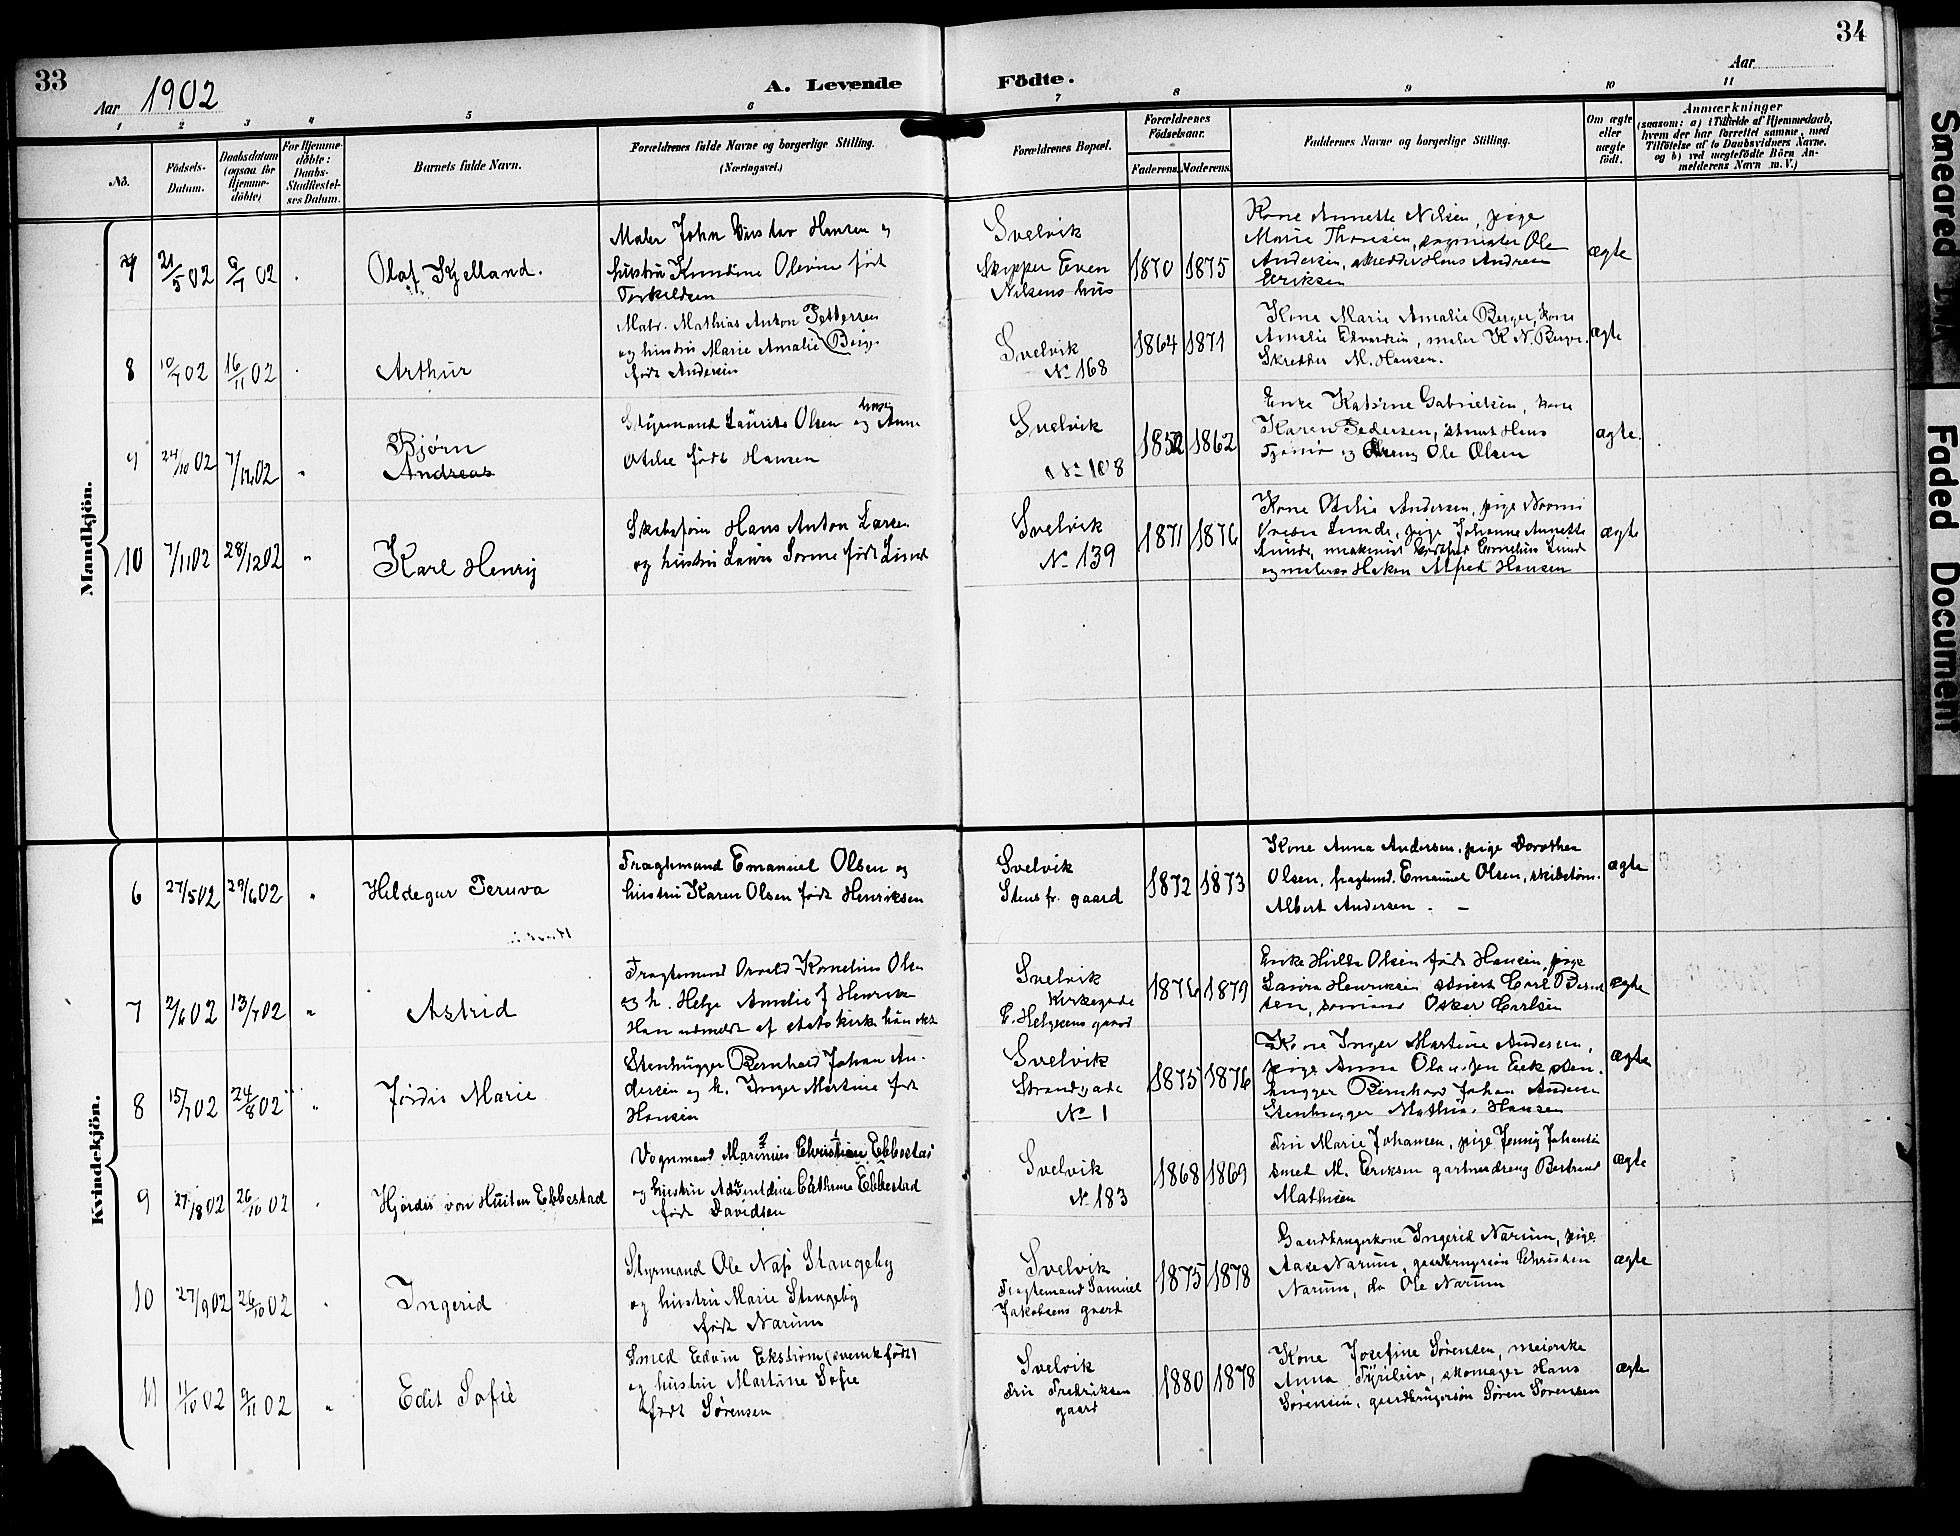 33
34
Aar 1902
A. Levende
Födte.
Aar
1 2 3 4 5 6 7 8 9 10 11
No.
Födsels-
Datum.
Daabsdatum
(ogsaa for
Hjemme-
döbte)
For Hjemme-
döbte:
Daabs-
Stadfæstel-
ses Datum.
Barnets fulde Navn.
Forældrenes fulde Navne og borgerlige Stilling.
(Næringsvei.)
Forældrenes Bopæl.
Forældrenes
Födselsaar.
Faderens. Moderens.
Faddernes Navne og borgerlige Stilling.
Om ægte
eller
uægte
födt.
Anmærkninger
(saasom: a) i Tilfælde af Hjemmedaab,
hvem der har forrettet samme, med
Tilföielse af to Daabsvidners Navne,
og b) ved uægtefödte Börn An-
melderens Navn m. V.)
Mandkjön.
7
21/5 02
Olaf Kjelland.
Maler John Hansen og
hustru Kundine Olevine født
Torkildsen
Svelvik
Skipper Even
Nilsens hus
1870 1875
Kone Annette Nilsen, pige
Marie Thoresen, Ole
Andersen, Hans Andreas
Eriksen
ægte
8
10/7 02
16/11 02
Arthur
Matr. Mathias Anton Pettersen
og hustru Marie Amalie Berg.
født Andersen
Svelvik
No 168
1864 1871
Kone Marie Amalie Berger, kone
Amalie, maler K. N. Berge.
Skrædder M. Hansen.
ægte
9
24/10 02
7/12 02
"
Bjørn
Andreas
Styrmand Laurits Olsen og hustru Anne
Otilie født Hansen
Svelvik
No 108
1852 1862
Enke Katrine Gabrielsen, kone
Karen Pedersen, Hans
og Ole Olsen
ægte.
10
7/11 02
28/12 02
"
Karl Henry
Skibstøm Hans Anton Larsen
og hustru Laura født Lund
Svelvik
No 139
1871 1876
Kone Otilie Andersen, pige
Lunde, pige Johanne Annette
Lunde, Cornelius Lund
og Hakon Alfred Hansen
ægte
Kvindekjön.
6
27/5 02
29/6 02
"
Hildegar Peruva
Fragtemand Emanuel Olsen og
hustru Karen Olsen født Henriksen
Svelvik
Stens fr. gaard
1872 1873
Kone Anna Andersen, pige Dorothea
Olsen, fragtmd. Emanuel Olsen, skibstøm.
Albert Andersen
ægte
7
2/6 02
13/7 02
"
Astrid
Fragtemand Osvald Kornelius Olsen
og h. Helga Amalie f Henriksen
Han udmeldt af statskirke hun
Svelvik
Kirkegade
E. Helgesens gaard
1876 1879
Enke Hulda Olsen født Hansen, pige
Laura Henriksen Carl Bernt
sen, sømand Oskar Carlsen
ægte
8
15/7 02
24/8 02
"
Jørdis Marie
Stenhugger Bernhard Johan An-
dersen og h. Inger Martine født
Hansen
Svelvik
Strandgade
No 1
1875 1876
Kone Inger Martine Andersen,
pige Anna Olausen Eek sten-
hugger Bernhard Johan Andersen
Stenhugger Mathias Hansen
ægte
9
27/8 02
26/10 02
Hjørdis von Huiten Ebbestad
Vognmand Marinius Christian Ebbestad
og hustru Adventdine Cathrine Ebbestad
født Davidsen
Svelvik
No 183
1868 1869
Fru Marie Johansen, pige Jenny Johansen
smed M. Eriksen gartnerdreng Bertrand
Mathisen
ægte
10
27/9 02
26/10 02
Ingerid
Styrmand Ole Stangeby
og hustru Marie Stangeby
født Narum
Svelvik
Fragtemand Samuel
Jakobsens gaard
1875 1878
Gaardbrugerkone Ingerid Narum, pige
Aase Narum, gaardbrugersøn Christian
Narum, do Ole Narum
ægte
11
11/10 02
9/11 02
"
Edit Sofie
Smed Edvin Ekstrøm (svensk født)
og hustru Martine Sofie
født Sørensen
Svelvik
Fru Fredriksen
gaard
1880 1878
Kone Josefine Sørensen, meierske
Anna, skomager Hans
Sørensen, gaardbrugersøn Søren Sørensen
ægte
Smeared
Faded Document